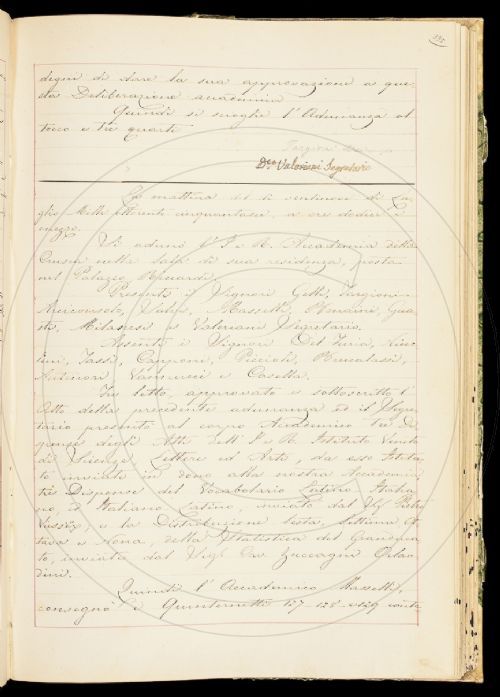 degni di dare la sua approvazione a que-
sta Deliberazione accademica
Quindi si scioglie l'Adunanza al
tocco e tre quarti
Dre Valeriani Segretario
La mattina del dì ventinove di Lu
glio Mille ottocento cinquantasei, a ore dodici e
mezzo.
Si adunò l'I. e R. Accademia della
Crusca nelle sale di sua residenza, poste
nel Palazzo Riccardi.
Presenti i Signori Gelli, Targioni
Mercurelli, Valeri, Masselli, Bonaini, Gua
sti, Milanesi e Valeriani Segretario.
Assenti i Signori Del Furia,
Tassi, Capponi, Piccioli, Brucalassi,
Antinori Vannucci e Casella.
Fu letto, approvato e sottoscritto l'
Atto della precedente adunanza ed il Segre
tario presentò al corpo Accademico Tre Di
spense degli Atti dell'I. e R. Istituto Veneto
di Scienze Lettere ed Arti, da esso Istitu
to inviate in dono alla nostra Accademia,
tre Dispense del Vocabolario Latino-Italia
no, e Italiano-Latino, inviato dal Sig. Pietro
e la Distribuzione Sesta, Settima Ot
tava e Nona, della Statistica del Granduca
to, inviata dal Sig. Zuccagni Orlan
dini.
Quindi l'Accademico Masselli,
consegnò i Quinternetti 127-128 e 129